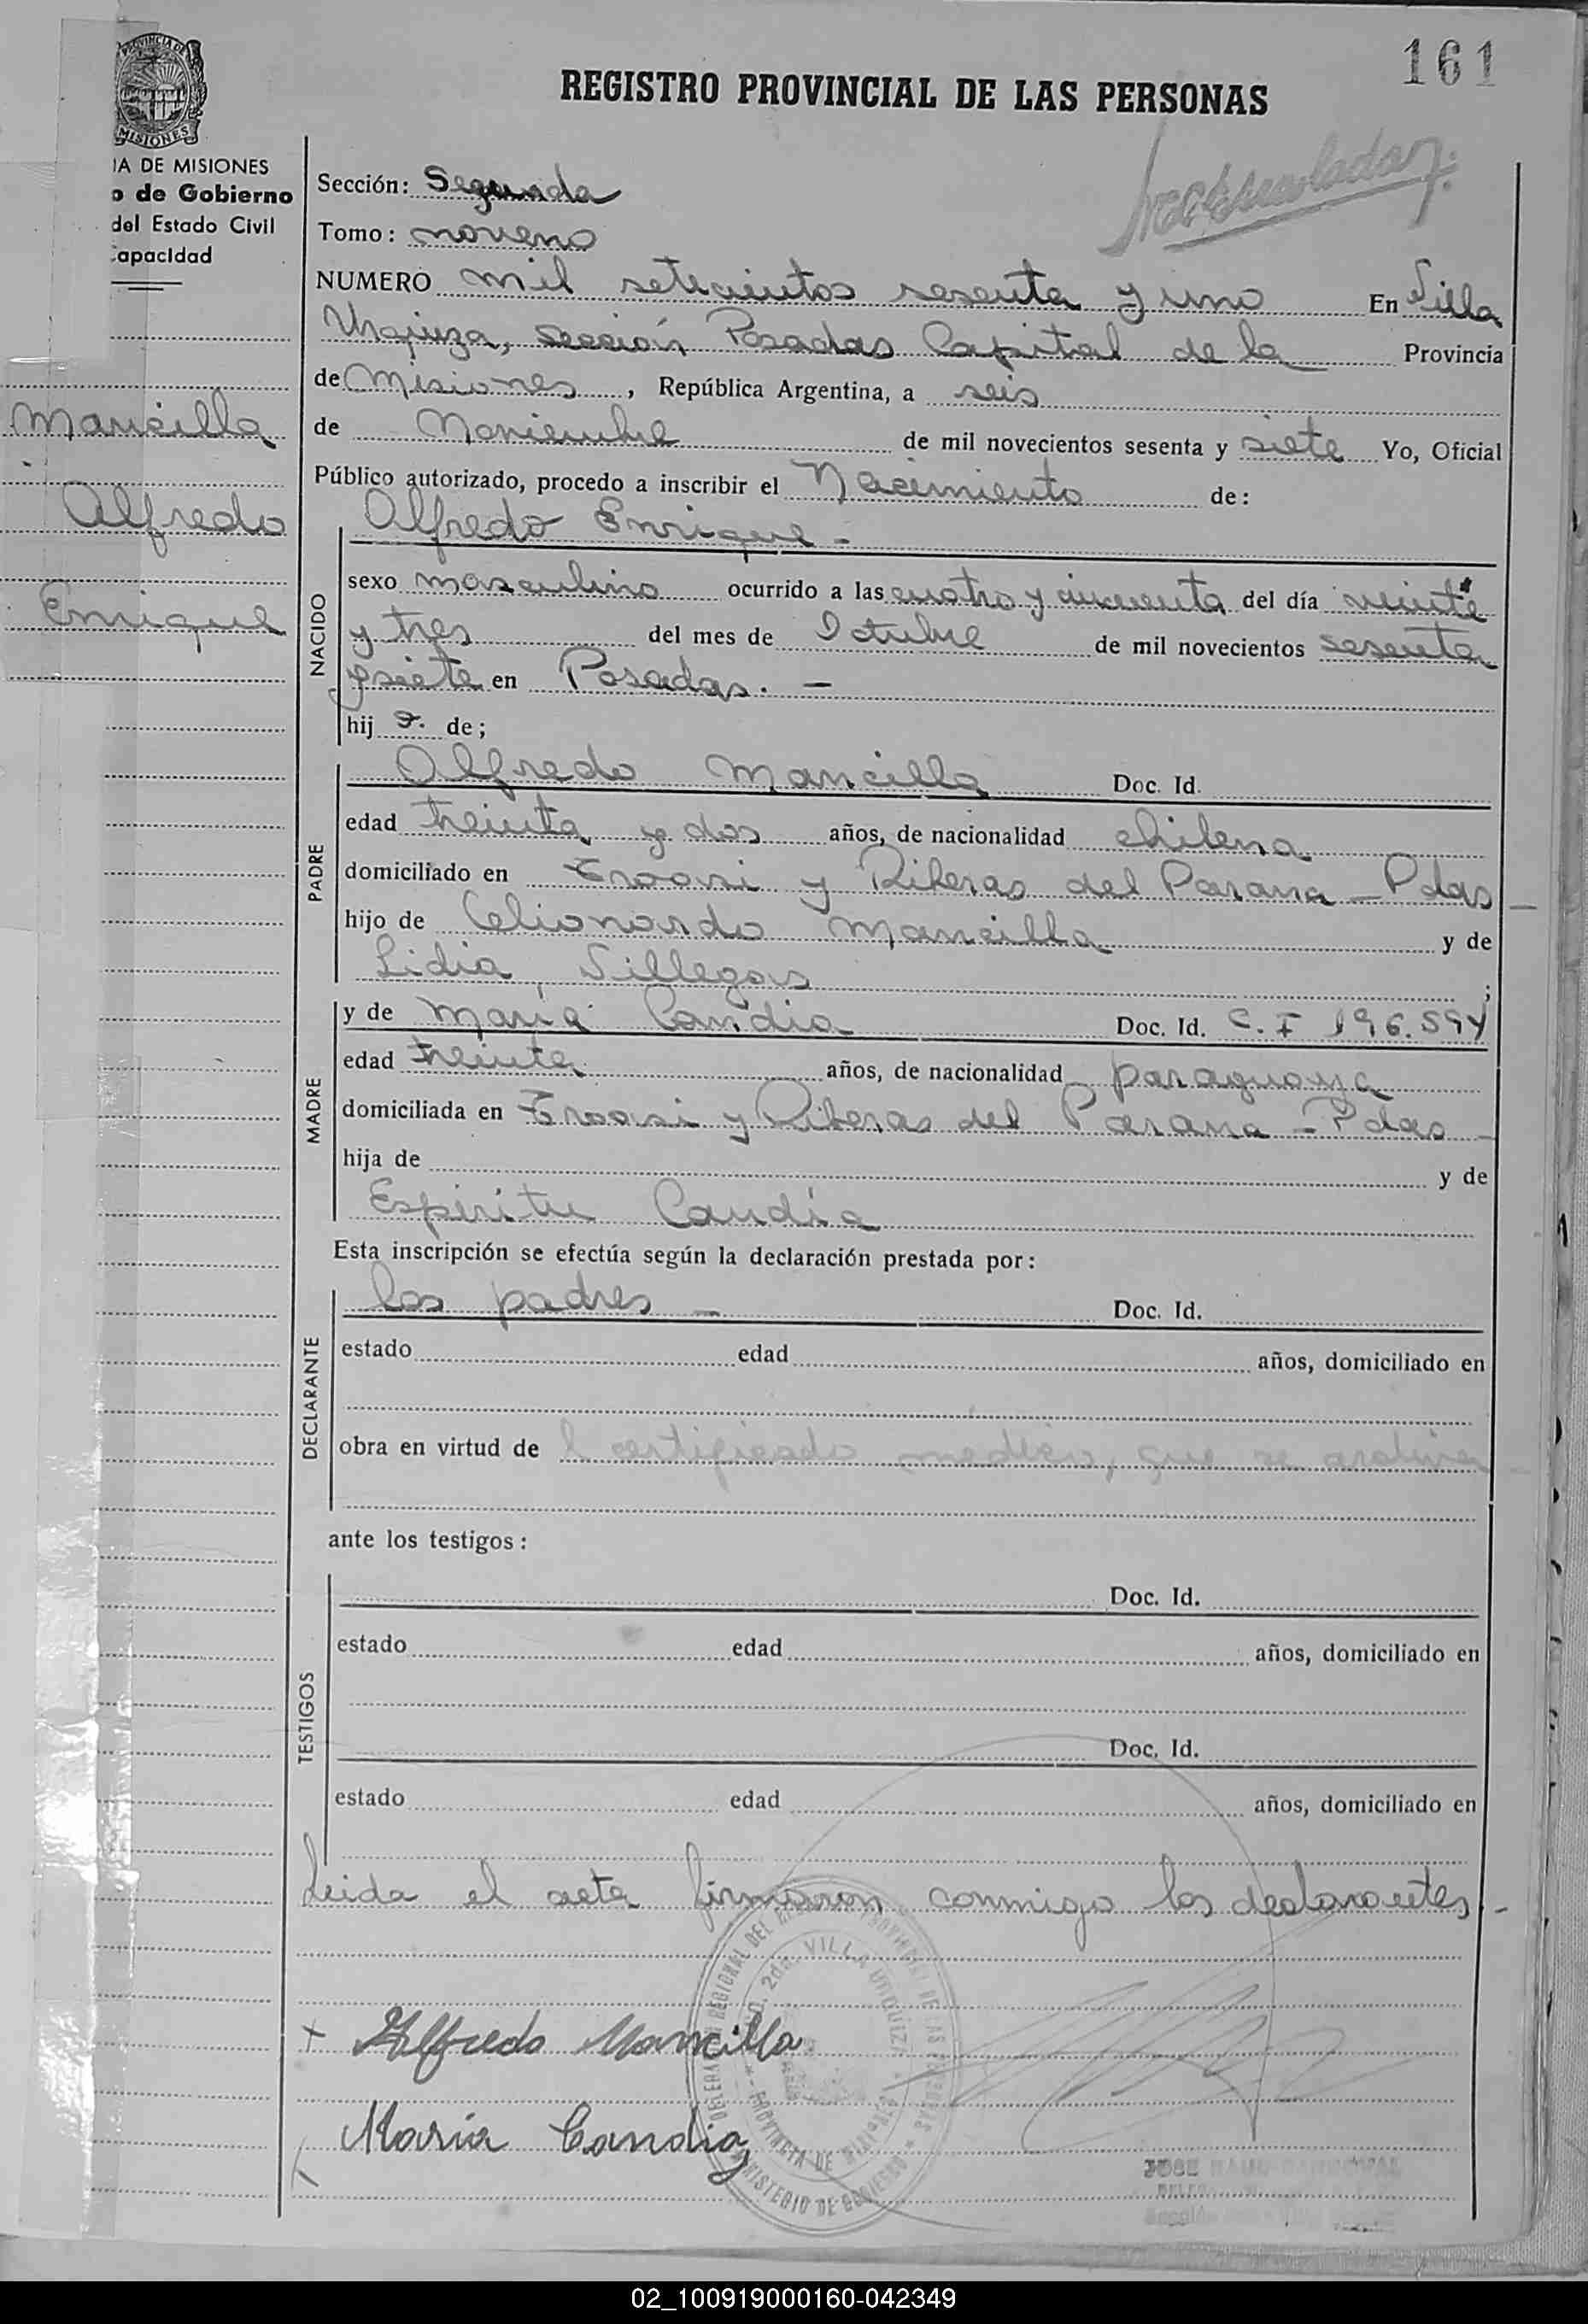 161
REGISTRO PROVINCIAL DE LAS PERSONAS
MISIONES
IA DE MISIONES
o de Gobierno
del Estado Civil
apacidad
Sección: Segunda
Tomo: noveno
NUMERO mil setecientos sesenta y uno En Villa
Urquiza, sección Posadas Capital de la Provincia
de Misiones, República Argentina, a seis
de Noviembre de mil novecientos sesenta y siete Yo, Oficial
Público autorizado, procedo a inscribir el Nacimiento de:
Mancilla
Alfredo
Enrique
NACIDO
Alfredo Enrique -
sexo masculino ocurrido a las cuatro y cincuenta del día veinte
y tres del mes de Octubre de mil novecientos sesenta
y siete en Posadas. -
hij o. de;
PADRE
Alfredo Mancilla Doc. Id.
edad treinta y dos años, de nacionalidad chilena
domiciliado en y Riberas del Parana - Pdas -
hijo de Celionardo Mancilla y de
Lidia Villegas ;
MADRE
y de María Candia Doc. Id. C. I 196.594
edad treinta años, de nacionalidad paraguaya
domiciliada en y Riberas del Parana - Pdas -
hija de y de
Espiritu Candia
Esta inscripción se efectúa según la declaración prestada por:
DECLARANTE
los padres - Doc. Id.
estado edad años, domiciliado en
obra en virtud de l certificado medico, que se archiva -
ante los testigos:
TESTIGOS
Doc. Id.
estado edad años, domiciliado en
Doc. Id.
estado edad años, domiciliado en
Leida el acta firmaron conmigo los declarantes. -
+ Alfredo Mancilla
María Candia
VILLA URQUIZA
PROVINCIA DE MISIONES
MINISTERIO DE GOBIERNO
JOSE RAUL SANDOVAL
02_100919000160-042349